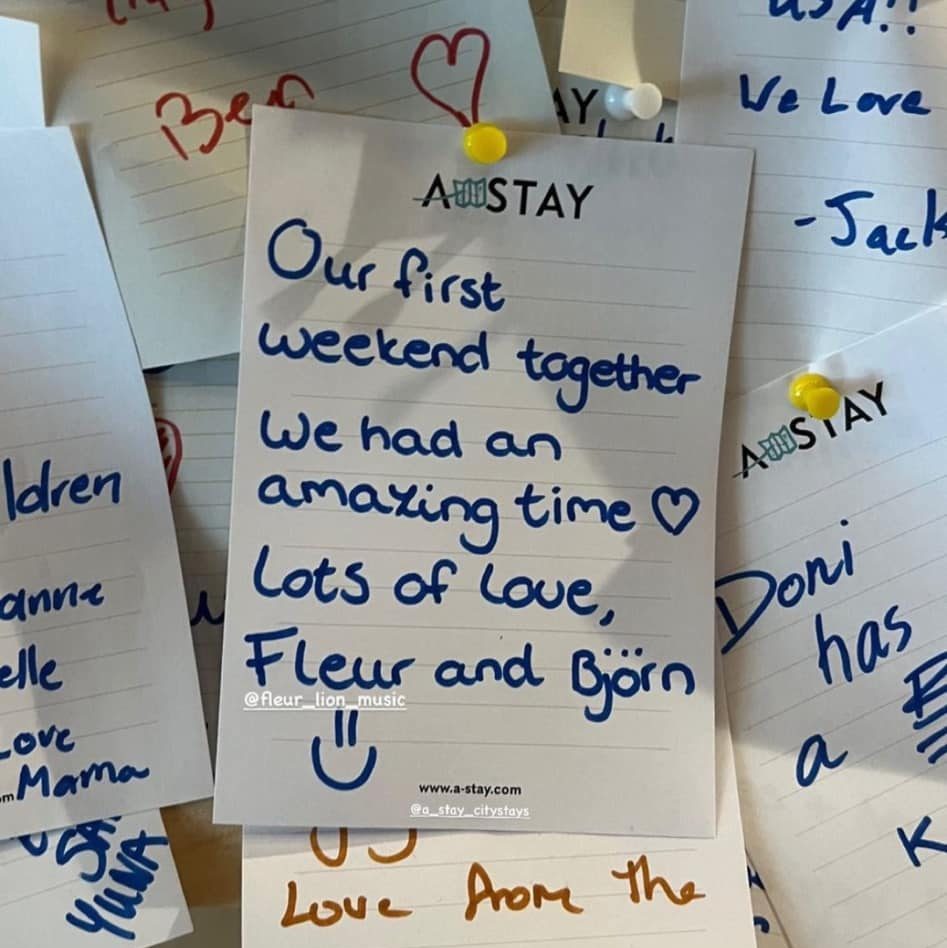 Ben
A STAY
Our first
weekend together
We had an
amazing time ♡
Lots of love,
Fleur and Björn
@fleur_lion_music
www.a-stay.com
@a_stay_citystays
USA!!
We Love
-Jack
AY
A STAY
Doni
has
a
K
ldren
anne
elle
Love
Mama
om
YUNA
Love from the